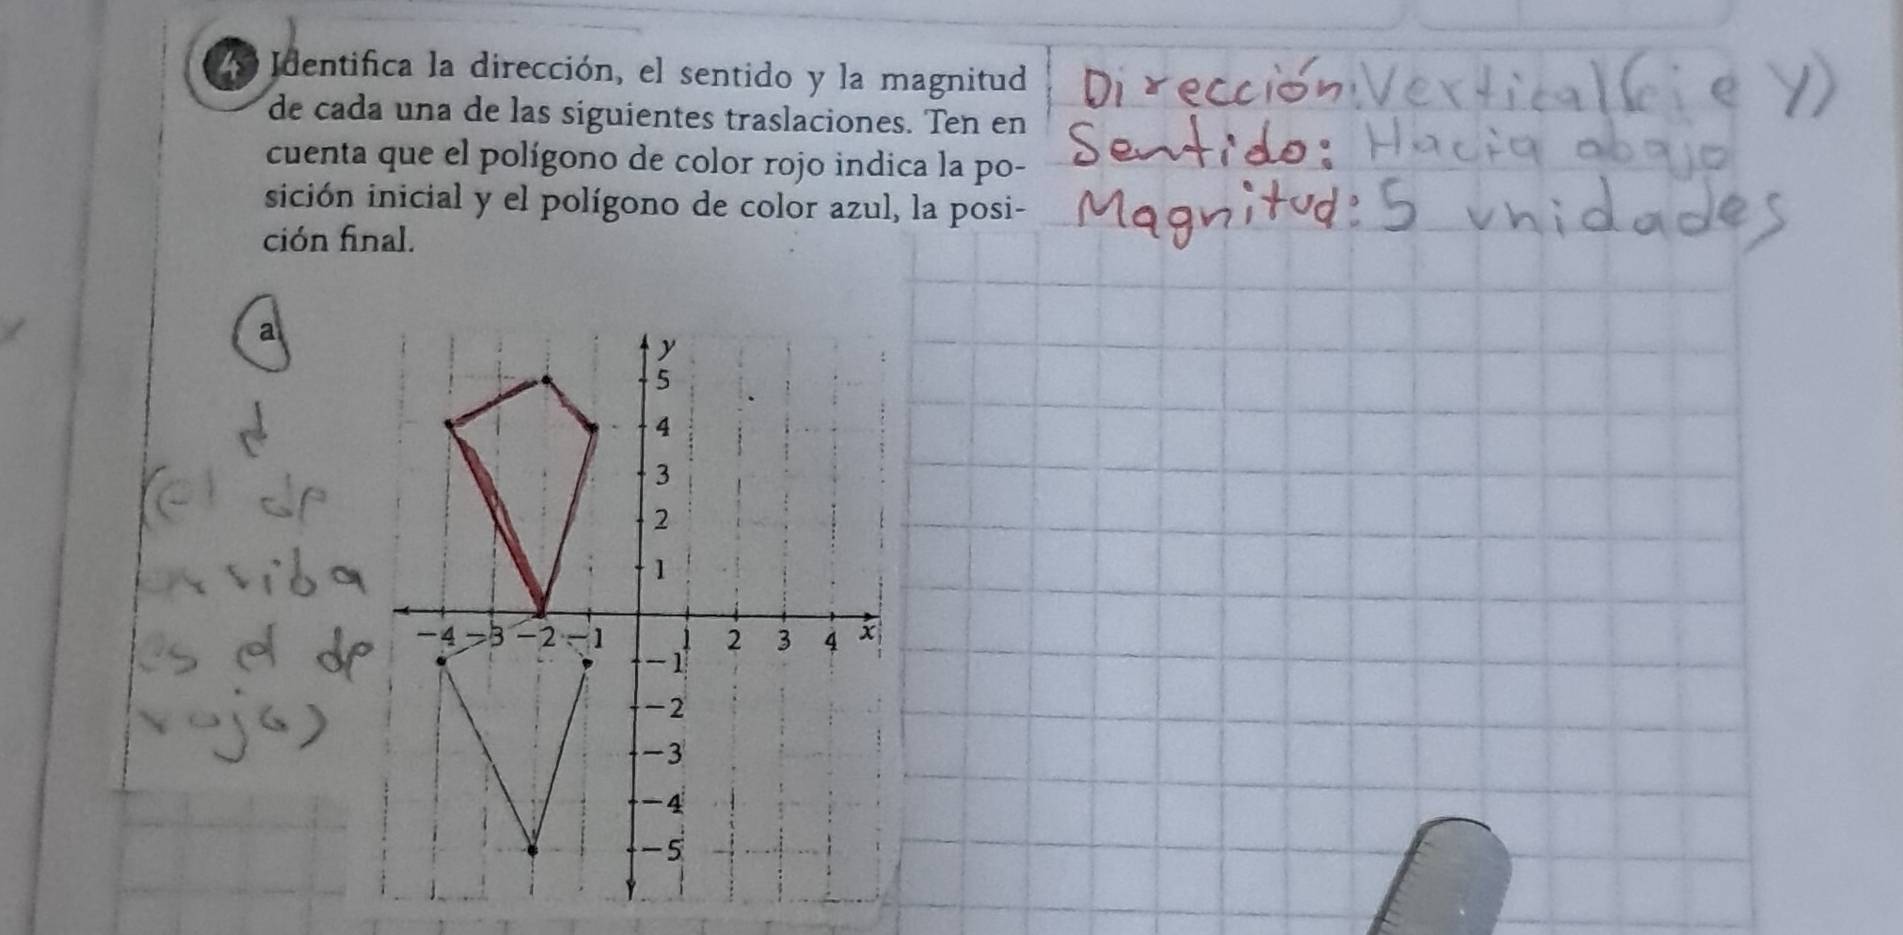 4 Identifica la dirección, el sentido y la magnitud
de cada una de las siguientes traslaciones. Ten en
cuenta que el polígono de color rojo indica la po-
sición inicial y el polígono de color azul, la posi-
ción final.
Dirección: Vertical (eje y)
Sentido: Hacia abajo
Magnitud: 5 unidades
a
(el de
arriba
es el de
rojo)
y
5
4
3
2
1
-4 -3 -2 -1 1 2 3 4 x
-1
-2
-3
-4
-5